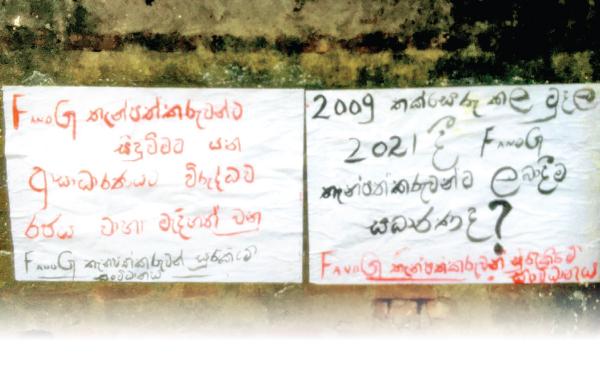 F AND G තැන්පත්කරුවන්ට
සිදුවීමට යන
අසාධාරණයට විරුද්ධව
රජය වහා මැදිහත් වනු
F AND G තැන්පත්කරුවන් සුරැකීමේ
සංවිධානය
2009 තක්සේරු කල මුදල
2021 දී F AND G
තැන්පත්කරුවන්ට ලබාදීම
සධාරණද?
F AND G තැන්පත්කරුවන් සුරැකීමේ
සංවිධානය